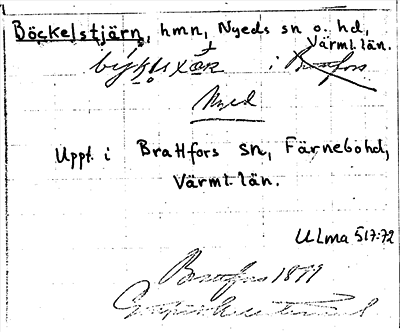 Böckelstjärn, hmn, Nyeds sn o. hd,
Värml. län.
i Brattfors
Nyed
Uppt. i Brattfors sn, Färnebo hd,
Värml. län.
ULma 517:72
Brattfors 1899